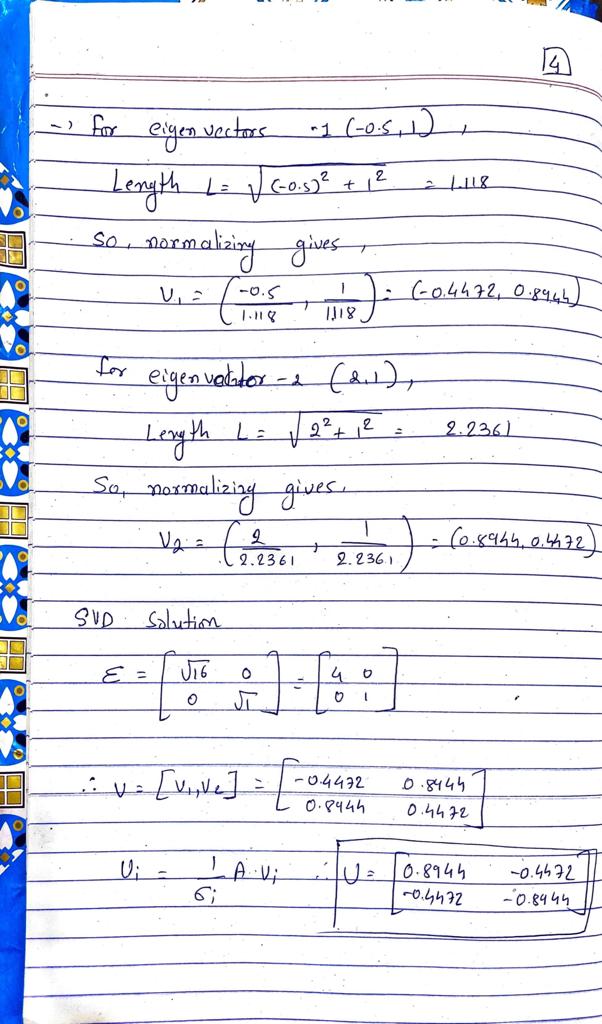 4
→ for eigen vectors -1 (-0.5, 1) ,
Length L = √(-0.5)² + 1² = 1.118
So, normalizing gives ,
V₁ = ( -0.5/1.118 , 1/1.118 ) = (-0.4472, 0.8944)
for eigenvector -2 (2,1),
Length L = √2² + 1² = 2.2361
So, normalizing gives,
V₂ = ( 2/2.2361 , 1/2.2361 ) = (0.8944, 0.4472)
SVD Solution
Ɛ = [ √16 0 ] = [ 4 0 ]
[ 0 √1 ] [ 0 1 ]
∴ V = [V₁,V₂] = [ -0.4472 0.8944 ]
[ 0.8944 0.4472 ]
Ui = 1/σi A·Vi ∴ U = [ 0.8944 -0.4472 ]
[ -0.4472 -0.8944 ]